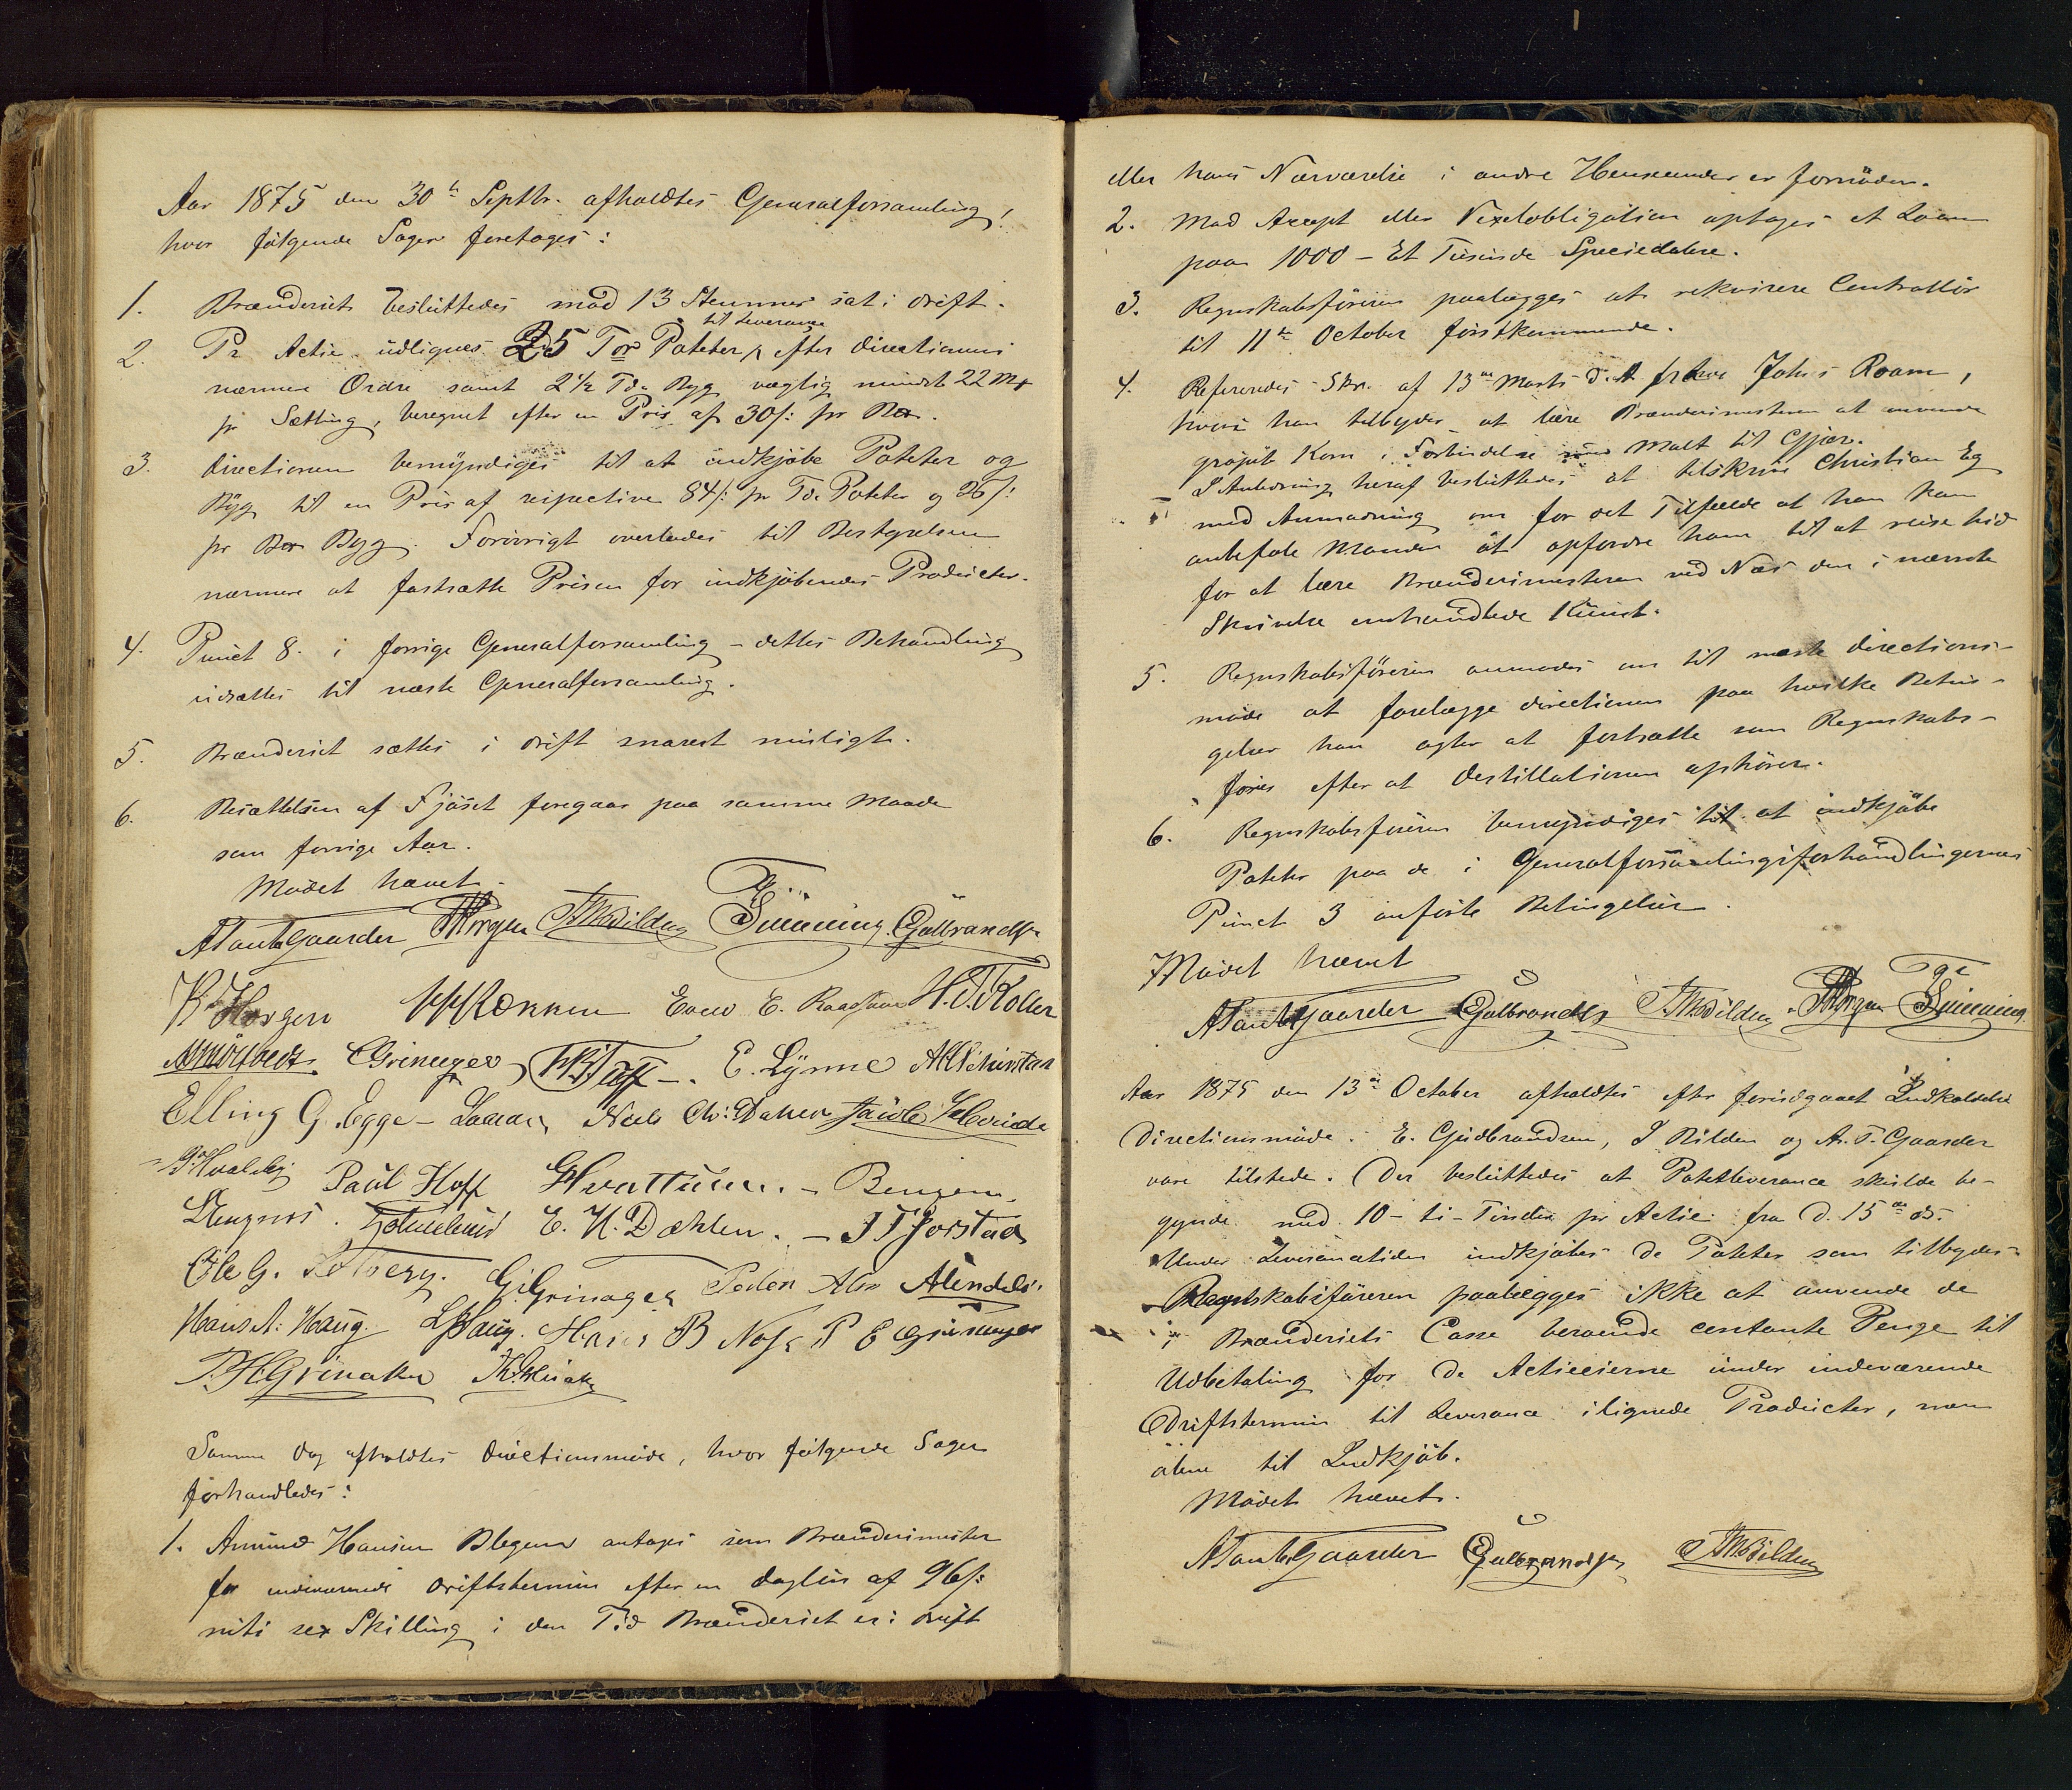 Aar 1875 den 30te Septbr. afholdtes Generalforsamling,
hvor følgende Sager foretoges:
1. Brænderiet besluttedes med 13 Stemmer sat i Drift.
2. Pr Actie udlignes 25 Tdr Poteter til Leverance efter Directionens
nærmere Ordre samt 2 1/2 Td. Byg vægtig mindst 22 Mk
pr Sætting, beregnet efter en Pris af 30 s: pr Bor.
3. Directionen bemyndiges til at indkjøbe Poteter og
Byg til en Pris af respective 84 s: pr Td. Poteter og 36 s:
pr Bor Byg. Forøvrigt overlades til Bestyrelsen
nærmere at fastsætte Prisen for indkjøbendes Producter.
4. Punct 8. i forrige Generalforsamling - dettes Behandling
udsættes til næste Generalforsamling.
5. Brænderiet sættes i Drift snarest muligt.
6. Besættelsen af Fjøset foregaar paa samme Maade
som forrige Aar.
Mødet hævet.
A Tante Gaarder THorgen J. M. Bilden Dünning Gulbrandsen
K. Horgen Røkken E. Raastad H. T. Koller
Grinager E. Lynne
Elling G. Egge - Laman Niels Chr: Dahlen Jacob
P. Hvaleby Paul Hoff G Hvattum. - Bergem.
E. H. Dæhlen. - J T Jorstad
Ole G. Solberg. G. Grinager Peder Alm
Hans A: Haug. L Haug. Hans B Nose P E Grinager
P. H. Grinaker
Samme Dag afholdtes Directionsmøde, hvor følgende Sager
forhandledes:
1. Amund Hansen Blegen antages som Brænderimester
for indeværende Driftstermin efter en Dagløn af 96 s:
niti sex Skilling i den Tid Brænderiet er i Drift
eller hans Nærværelse i andre Henseender er fornøden.
2. Mod Accept eller Vexelobligation optages et Laan
paa 1000 - Et Tusinde Speciedalere.
3. Regnskabsføreren paalægges at rekvirere Controllør
til 11te October førstkommende.
4. Refereredes Skr. af 13de Marts d. A. fra Johs Roam,
hvori han tilbyder at lære Brænderimesteren at anvende
grøpet Korn i Forbindelse med Malt til Gjær.
I Anledning heraf besluttedes at tilskrive Christian Eg
med Anmodning om for det Tilfælde at han kan
anbefale Manden at opfordre ham til at reise hid
for at lære Brænderimesteren ved Næs den i nævnte
Skrivelse omhandlede Kunst.
5. Regnskabsføreren anmodes om til næste Directions-
møde at forelægge Directionen paa hvilke Betin-
gelser han agter at fortsætte som Regnskabs-
fører efter at Destillationen ophører.
6. Regnskabsføreren bemyndiges til at indkjøbe
Poteter paa de i Generalforsamlingsforhandlingernes
Punct 3 anførte Betingelser.
Mødet hævet
A Tante Gaarder Gulbrandsen J. M. Bilden THorgen Dünning
Aar 1875 den 13de October afholdtes efter forudgaaet Indkaldelse
Directionsmøde. E. Gudbrandsen, I Bilden og A. T. Gaarder
vare tilstede. Der besluttedes at Potetleverance skulde be-
gynde med 10 - ti - Tønder pr Actie fra D. 15de ds.
Under Leverancetiden indkjøbes de Poteter som tilbydes.
Regnskabsføreren paalægges ikke at anvende de
i Brænderiets Casse beroende contante Penge til
Udbetaling for de Actieeierne under indeværende
Driftstermin til Leverance ilignede Producter, men
alene til Indkjøb.
Mødet hævet.
A Tante Gaarder Gulbrandsen J. M. Bilden